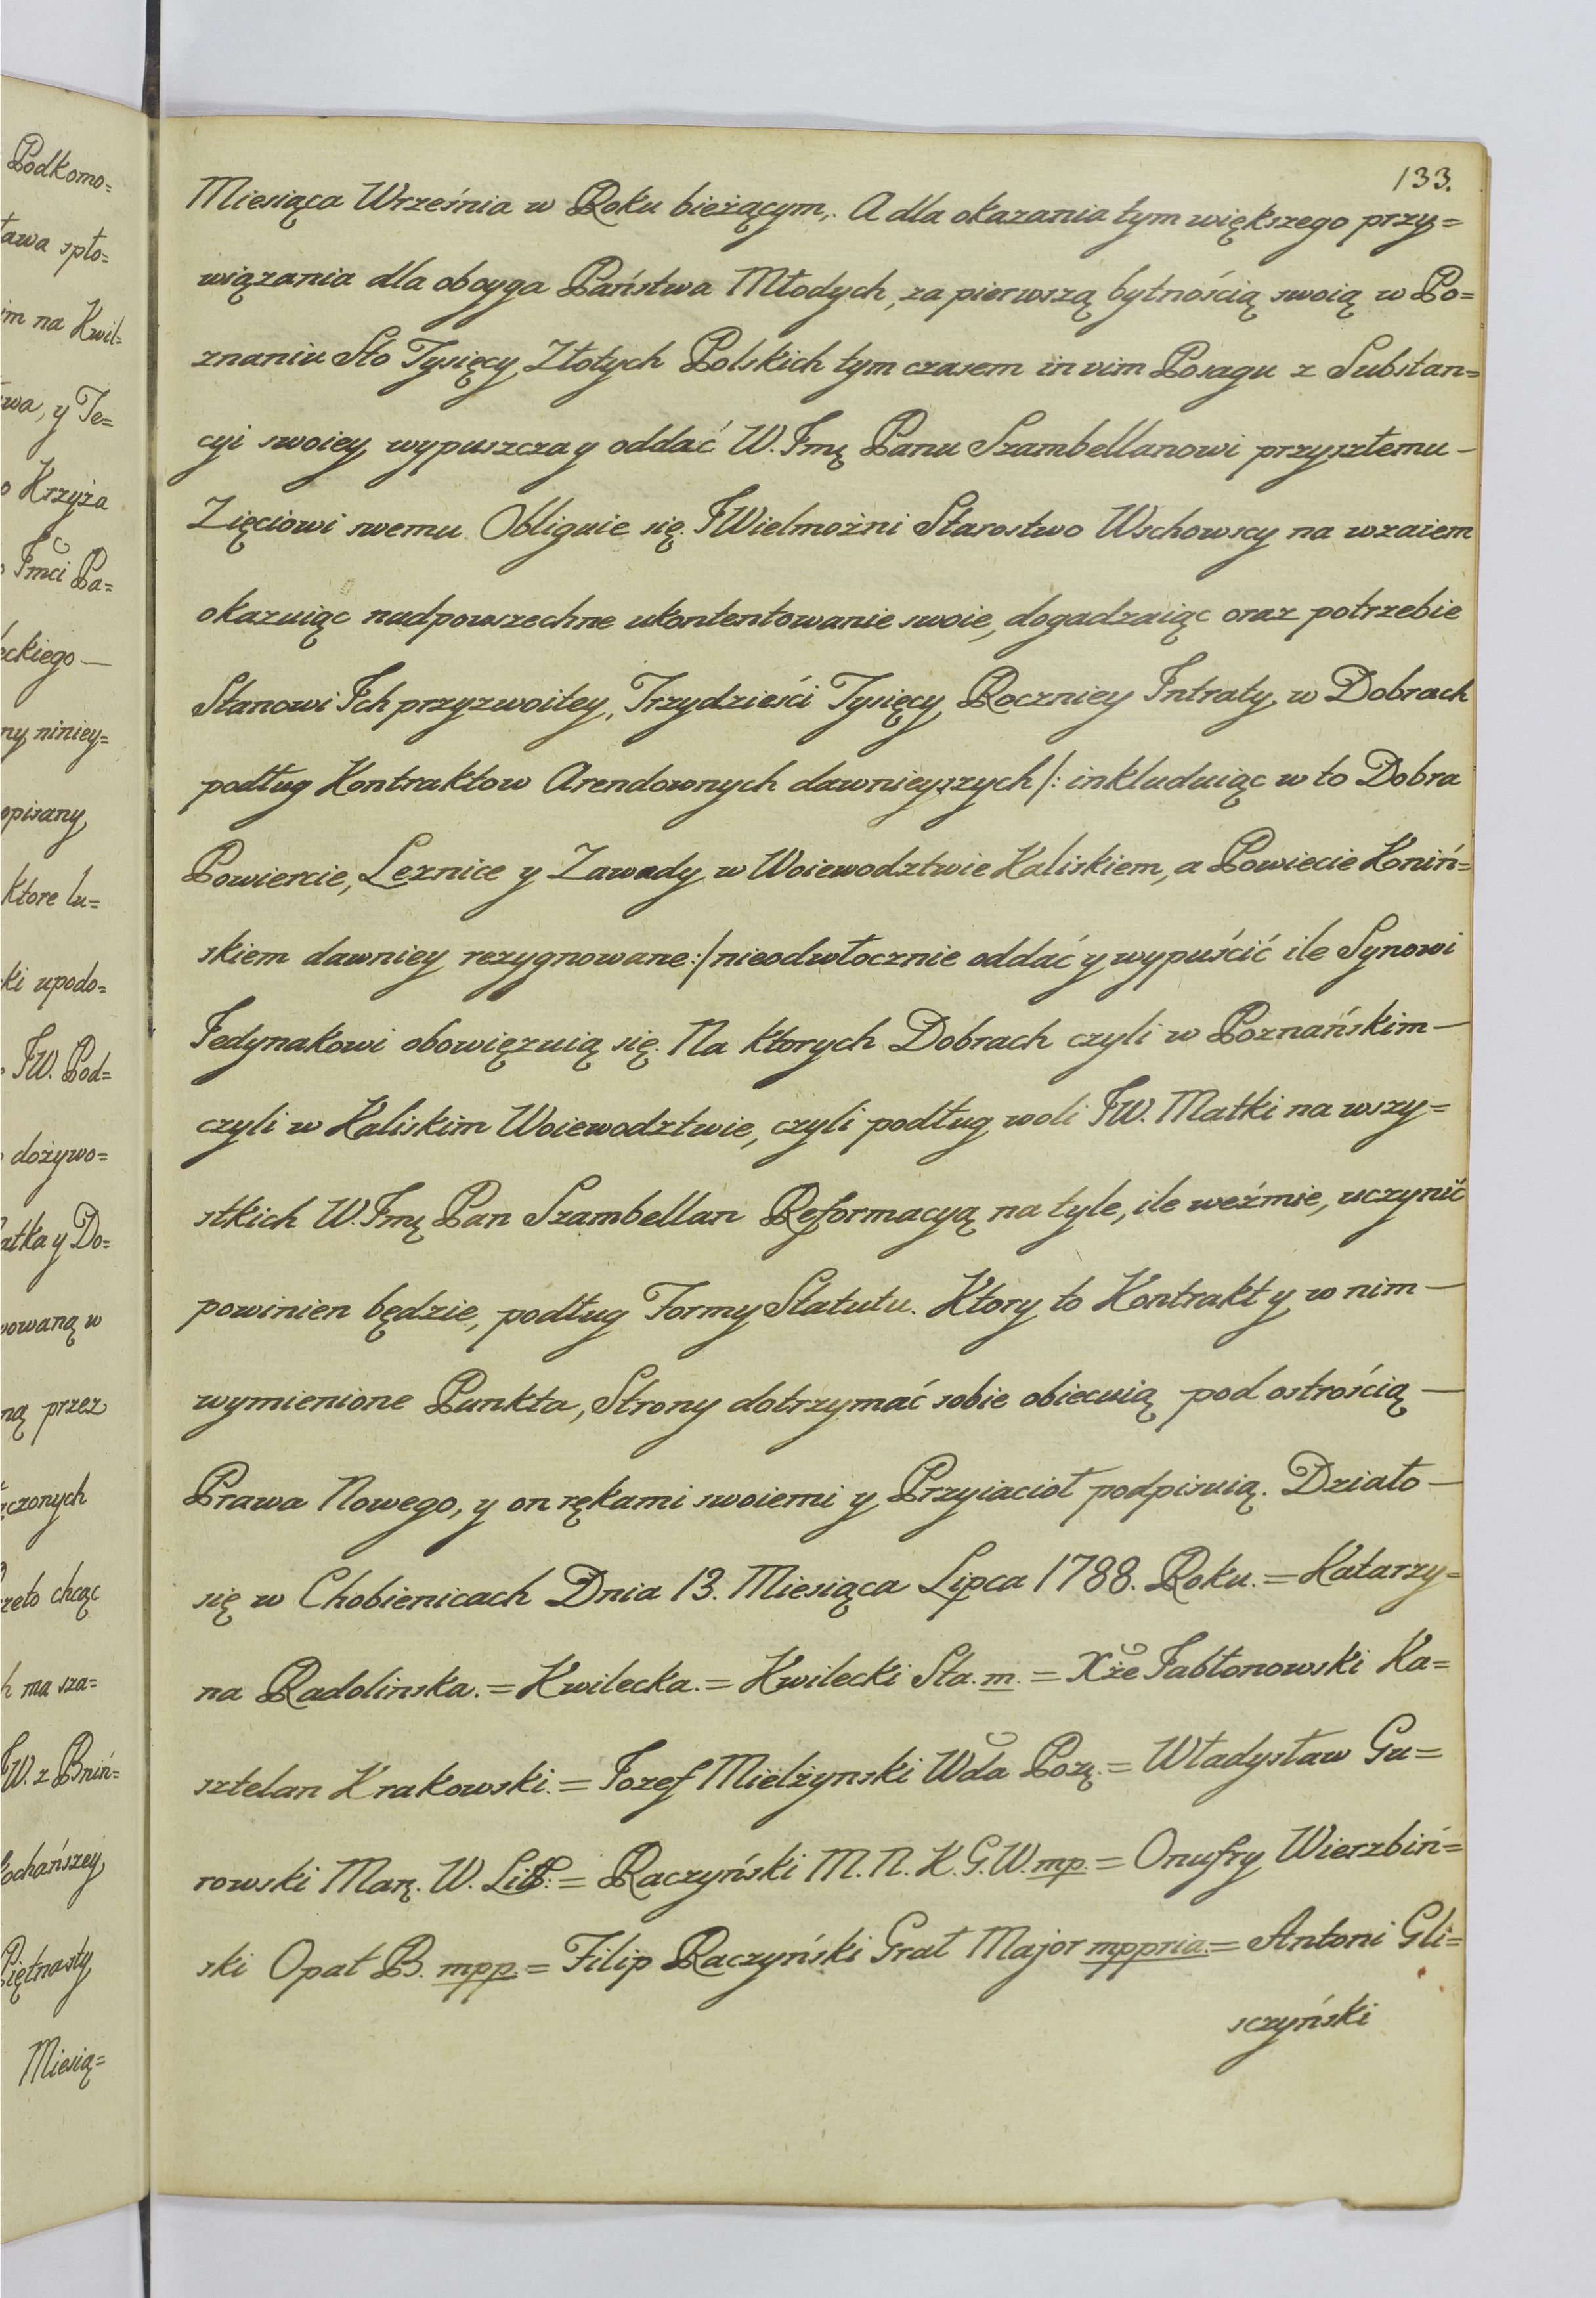 133.
Miesiąca Września w Roku bieżącym,. A dla okazania tym większego przy=
wiązania dla oboyga Państwa Młodych, za pierwszą bytnością swoią w Po=
znaniu Sto Tysięcy Złotych Polskich tym czasem in vim Posagu z Substan=
cyi swoiey wypuszcza y oddać W. Jmę Panu Szambellanowi przyszłemu –
Zięciowi swemu Obliguie się. JWielmożni Starostwo Wschowscy na wzaiem
okazuiąc nadpowszechne ukontentowanie swoie, dogadzaiąc oraz potrzebie
Stanowi Ich przyzwoitey, Trzydzieści Tysięcy Roczniey Intraty w Dobrach
podług Kontraktow Arendownych dawnieyszych /: inkluduiąc w to Dobra
Powiercie, Leznice y Zawady w Woiewodztwie Kaliskiem, a Powiecie Koniń=
skiem dawniey rezygnowane :/ nieodwłocznie oddać y wypuścić ile Synowi
Jedynakowi obowięzuią się. Na ktorych Dobrach czyli w Poznańskim –
czyli w Kaliskim Woiewodztwie, czyli podług woli JW. Matki na wszy=
stkich W. Jmę Pan Szambellan Reformacyą na tyle, ile weźmie, uczynić
powinien będzie, podług Formy Statutu. Ktory to Kontrakt y w nim –
wymienione Punkta, Strony dotrzymać sobie obiecuią pod ostrością –
Prawa Nowego, y on rękami swoiemi y Przyiacioł podpisuią. Działo –
się w Chobienicach Dnia 13. Miesiąca Lipca 1788. Roku. = Katarzy=
na Radolinska. = Kwilecka. = Kwilecki Sta. m. = Xże Jabłonowski Ka=
sztelan Krakowski. = Jozef Mielżynski Wda Pozę. = Władysław Gu=
rowski Marę. W. Litt: = Raczyński M. N. K. G. W. mp. = Onufry Wierzbiń=
ski Opat B. mpp. = Filip Raczyński Grat Major mppria. = Antoni Gli=
sczyński
Podkomo=
ława spło=
im na Kwil=
twa, y Te=
o Krzyża
Jmci Pa=
eckiego –
ny niniey=
opisany
ktore lu=
ki upodo=
JW. Pod=
dożywo=
atka y Do=
wowaną w
ną przez
czonych
zeto chcąc
h ma sza=
JW. z Bniń=
ochańszey
Piętnasty
Miesią=